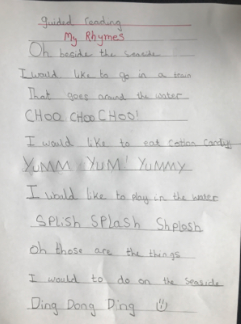 guided reading
My Rhymes
Oh beside the seaside
I would like to go in a train
That goes around the water
CHOO CHOO CHOO!
I would like to eat cotton candy
YUMM YUM! YUMMY
I would like to play in the water
SPLISH SPLASH Shplosh
Oh those are the things
I would to do on the seaside
Ding Dong Ding